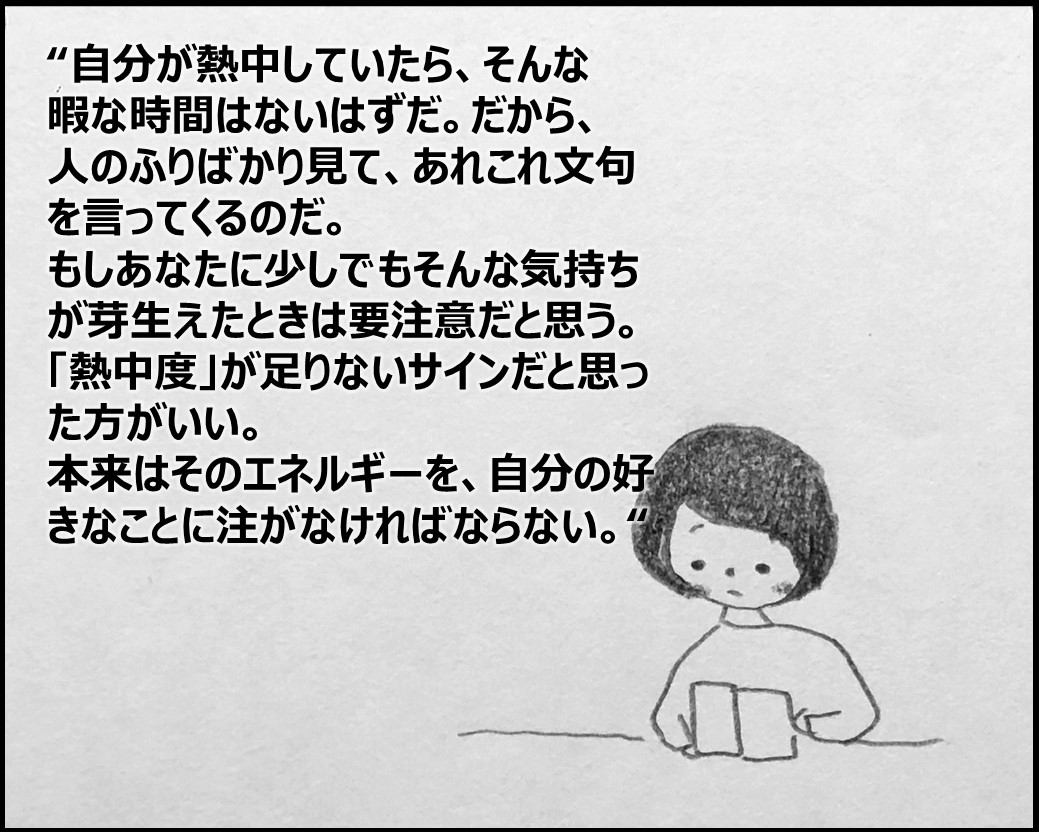 “自分が熱中していたら、そんな
暇な時間はないはずだ。だから、
人のふりばかり見て、あれこれ文句
を言ってくるのだ。
もしあなたに少しでもそんな気持ち
が芽生えたときは要注意だと思う。
「熱中度」が足りないサインだと思っ
た方がいい。
本来はそのエネルギーを、自分の好
きなことに注がなければならない。“